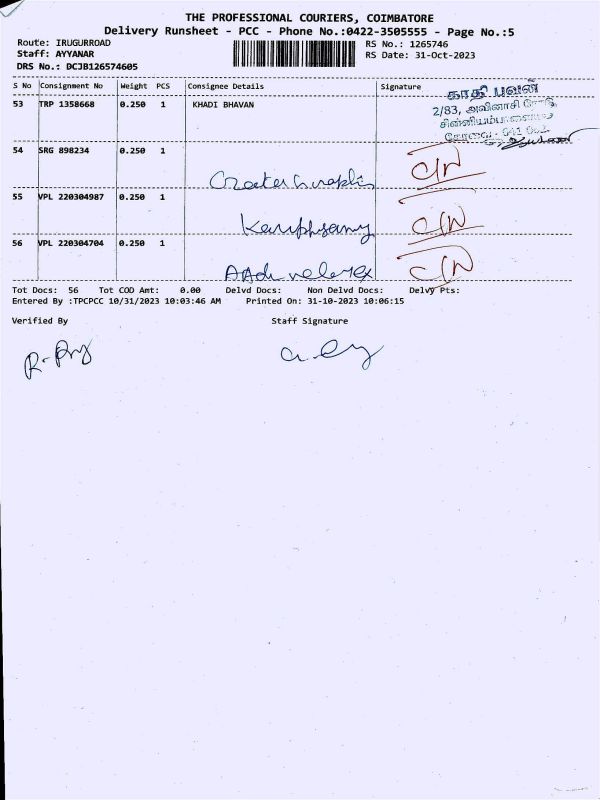 THE PROFESSIONAL COURIERS, COIMBATORE
Delivery Runsheet - PCC - Phone No.:0422-3505555 - Page No.:5
Route: IRUGURROAD
RS No.: 1265746
Staff: AYYANAR
RS Date: 31-Oct-2023
DRS No.: DCJB126574605
S No Consignment No Weight PCS Consignee Details Signature
53 TRP 1358668 0.250 1 KHADI BHAVAN
காதி பவன்
2/83, அவினாசி ரோடு
கோவை - 641 062
54 SRG 898234 0.250 1
C/N
55 VPL 220304987 0.250 1
C/N
56 VPL 220304704 0.250 1
C/N
Tot Docs: 56 Tot COD Amt: 0.00 Delvd Docs: Non Delvd Docs: Delvy Pts:
Entered By :TPCPCC 10/31/2023 10:03:46 AM Printed On: 31-10-2023 10:06:15
Verified By Staff Signature